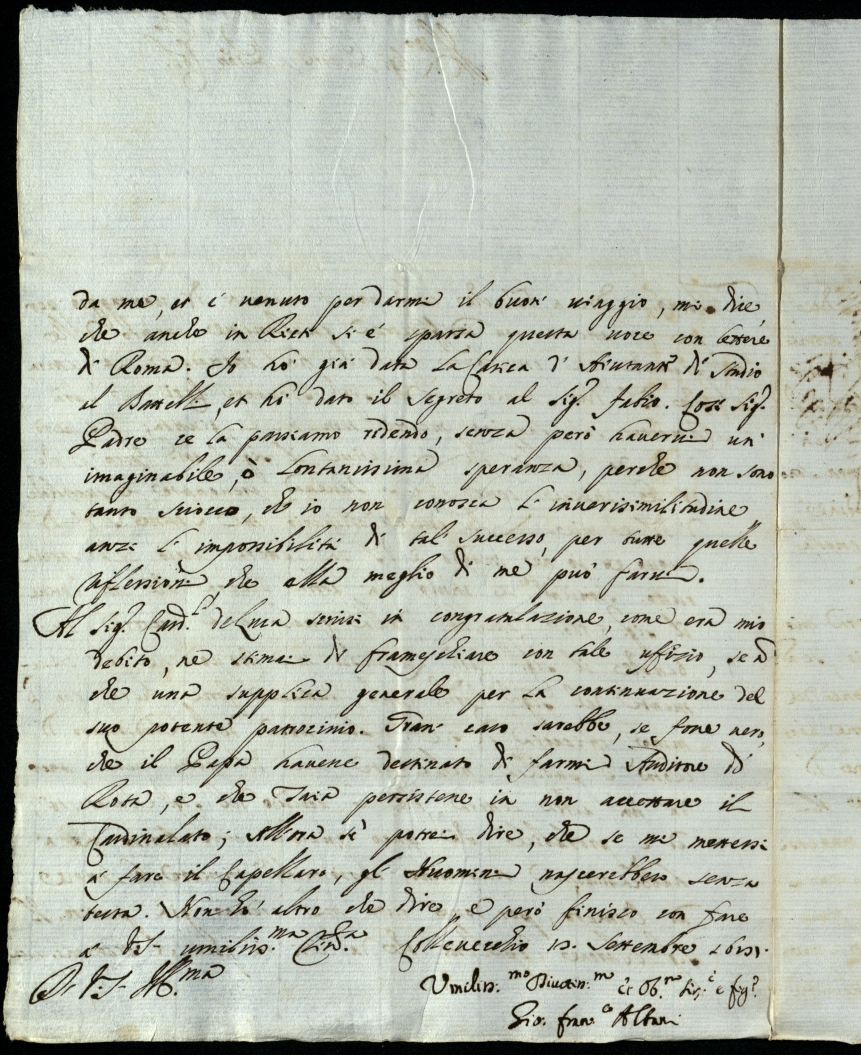 da me, et è venuto per darmi il buon viaggio, mi dice,
che anche in Rieti si è sparsa questa voce con lettere
di Roma. Io hò già data la Carica d'Aiutante di Studio
al Battelli, et hò dato il segreto al Sigr. Fabio. Così Sigr.
Padre ce la passiamo ridendo, senza però haverne un'
imaginabile, ò lontanissima speranza, perche non sono
tanto sciocco, che io non conosca l'inverisimilitudine
anzi l'impossibilità di tal successo, per tutte quelle
riflessioni che ella meglio di me può fare.
Al Sigr. Card.l de Luca scrissi in congratulazione, come era mio
debito, ne stimai di framischiare con tale uffizio, se nō
che una supplica generale per la continuazione del
suo potente patrocinio. Gran caso sarebbe, se fosse vero,
che il Papa havesse destinato di farmi Auditore di
Rota, e che Taia persistesse in non accettare il
Cardinalato; Allora sì potrei dire, che se mi mettessi
à fare il Capellaro, gl'Huomini nascerebbero senza
testa. Non hò altro che dire e però finisco con fare
à V.S. umiliss.ma Settembre
Di V.S. Ill.ma
Umiliss.mo Divotiss.mo et Ob.mo e fig.o
Gio. Fran.co Albani